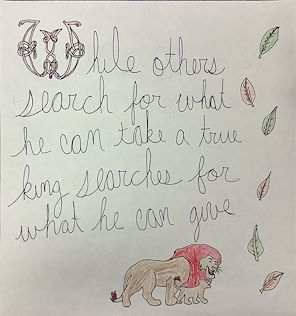 While others
search for what
he can take a true
king searches for
what he can give